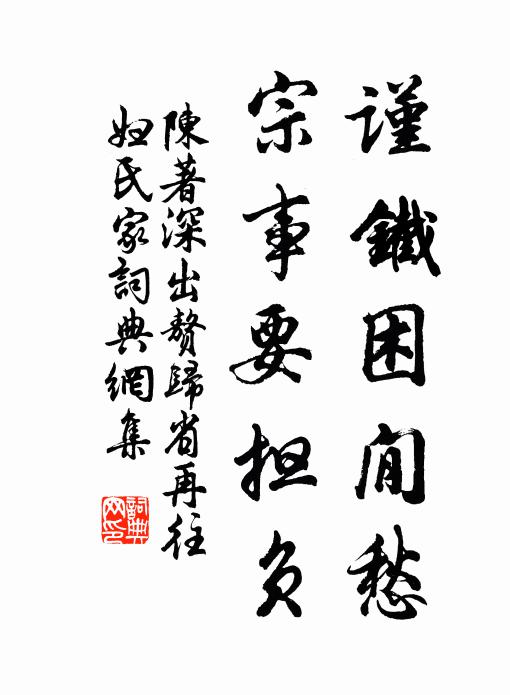 謹鐵困閒愁
宗事要担負
陳著深出贅歸省再往
妲氏家詞典網集
詞典網印